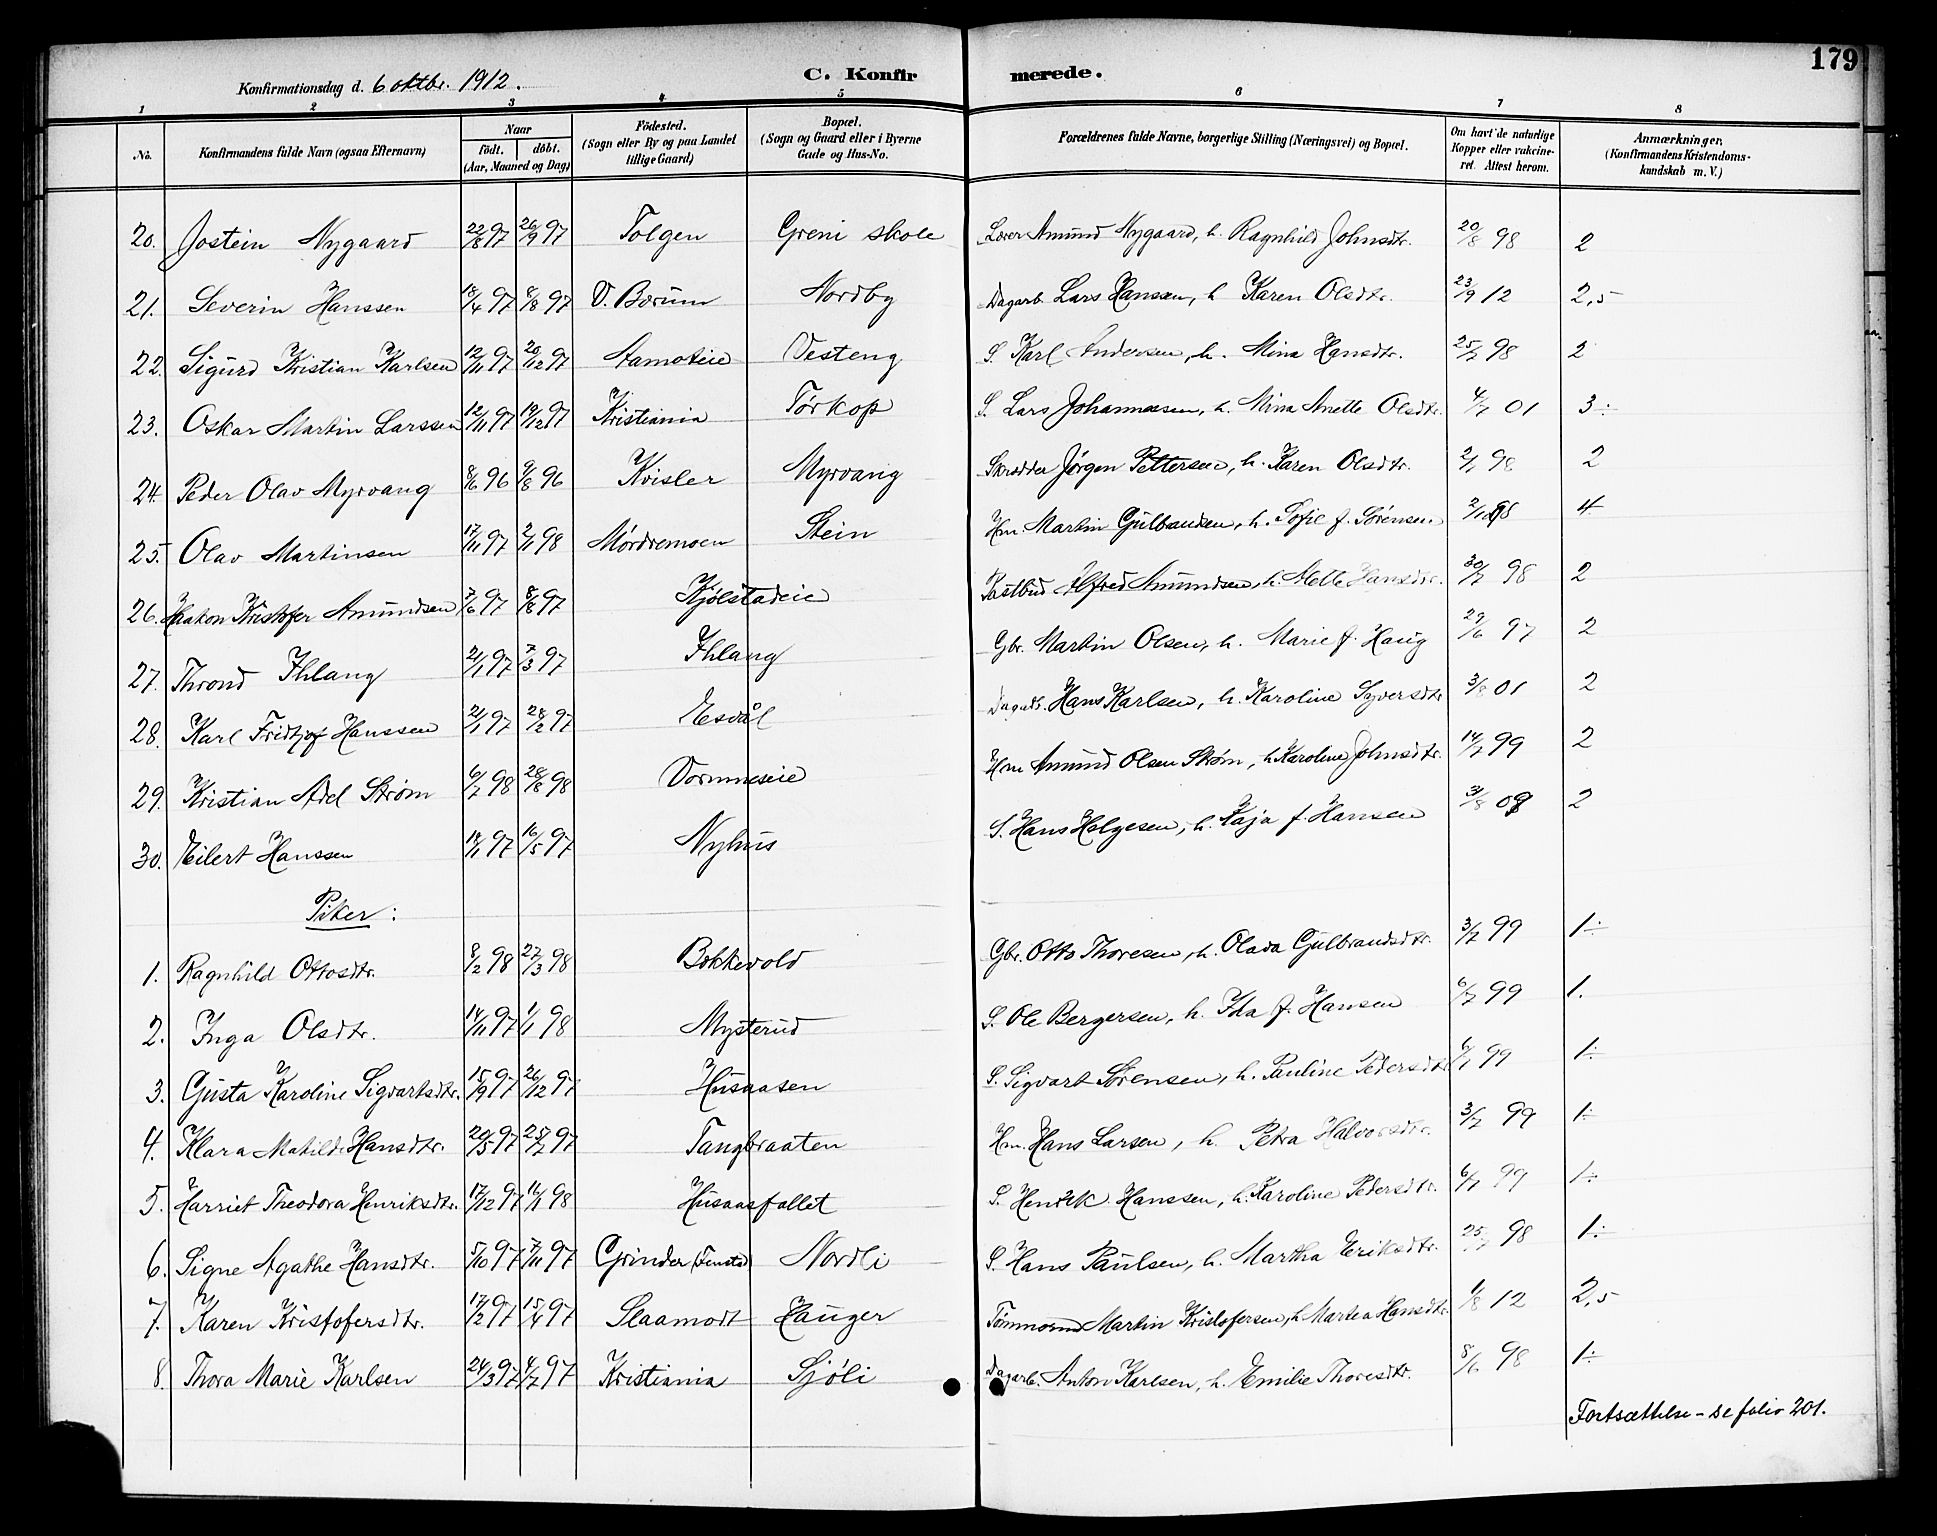 179
Konfirmationsdag d. 6 oktbr. 1912.
C. Konfirmerede.
1 2 3 4 5 6 7 8
No. | Konfirmandens fulde Navn (ogsaa Efternavn) | Naar født. døbt. (Aar, Maaned og Dag) | Fødested. (Sogn eller By og paa Landet tillige Gaard) | Bopæl. (Sogn og Gaard eller i Byerne Gade og Hus-No. | Forældrenes fulde Navne, borgerlige Stilling (Næringsvei) og Bopæl. | Om havt de naturlige Kopper eller vakcineret. Attest herom. | Anmærkninger. (Konfirmandens Kristendomskundskab m. V.)
20. Jostein Nygaard 22/8 97 26/9 97 Tolgen Greni skole Lærer Amund Nygaard, h. Ragnhild Johnsdtr. 20/8 98 2
21. Severin Hanssen 18/4 97 8/8 97 V. Bærum Nordby Dagarb. Lars Hanssen, h. Karen Olsdtr. 23/9 12 2,5
22. Sigurd Kristian Karlsen 12/11 97 20/12 97 Aamoteie Vesteng S. Karl Andersen, h. Mina Hansdtr. 25/7 98 2
23. Oskar Martin Larssen 12/11 97 19/12 97 Kristiania Tørkop S. Lars Johannesen, h. Mina Anette Olsdtr. 4/7 01 3÷
24. Peder Olav Myrvang 8/6 96 9/8 96 Kvisler Myrvang Skrædder Jørgen Pettersen, h. Karen Olsdtr. 2/7 98 2
25. Olav Martinsen 17/11 97 2/1 98 Mørdremoen Stein Hm. Martin Gulbandsen, h. Sofie f. Sørensen 98 4
26. Haakon Kristofer Amundsen 7/6 97 8/8 97 Kjølstadeie Postbud Alfred Amundsen, h. Mette Hansdtr. 30/7 98 2
27. Thrond Ihlang 21/1 97 7/3 97 Ihlang Gbr. Martin Olsen, h. Marie f. Haug 29/6 97 2
28. Karl Fridtjof Hanssen 21/1 97 28/2 97 Esvål Dagarb. Hans Karlsen, h. Karoline Syversdtr. 3/8 01 2
29. Kristian Adel Strøm 6/7 98 28/8 98 Vormneseie Hm Amund Olsen Strøm, h. Karoline Johnsdtr. 14/7 99 2
30. Eilert Hanssen 97 16/5 97 Nyhus S. Hans Helgesen, h. Kaja f. Hansen 2
Piker:
1. Ragnhild Ottosdtr. 8/2 98 27/3 98 Bokkevold Gbr. Otto Thoresen, h. Olava Gulbrandsdtr. 3/7 99 1÷
2. Inga Olsdtr. 14/11 97 1/1 98 Mysterud S. Ole Bergersen, h. Ida f. Hansen 6/7 99 1.
3. Gusta Karoline Sigvartsdtr. 15/9 97 26/12 97 Husaasen S. Sigvart Sørensen, h. Pauline Pedersdtr 6/7 99 1÷
4. Klara Matilde Hansdtr. 20/5 97 25/7 97 Tangbraaten Hm. Hans Larsen, h. Petra Halvorsdtr. 3/7 99 1÷
5. Harriet Theodora Henriksdtr. 17/12 97 98 Husaasfallet S. Henrik Hanssen, h. Karoline Pedersdtr. 6/7 99 1÷
6. Signe Agathe Hansdtr. 5/10 97 7/11 97 Grinder (Fenstad) Nordli S. Hans Paulsen, h. Martha Eriksdtr. 25/7 98 1÷
7. Karen Kristofersdtr. 17/2 97 15/4 97 Slaamodt Hauger Tømmerm Martin Kristofersen, h Martea Hansdtr. 1/8 12 2,5
8. Thora Marie Karlsen 24/3 97 4/7 97 Kristiania Sjøli Dagarb. Anton Karlsen, h. Emilie Thoresdtr. 8/6 98 1÷
Fortsættelse - se folio 201.